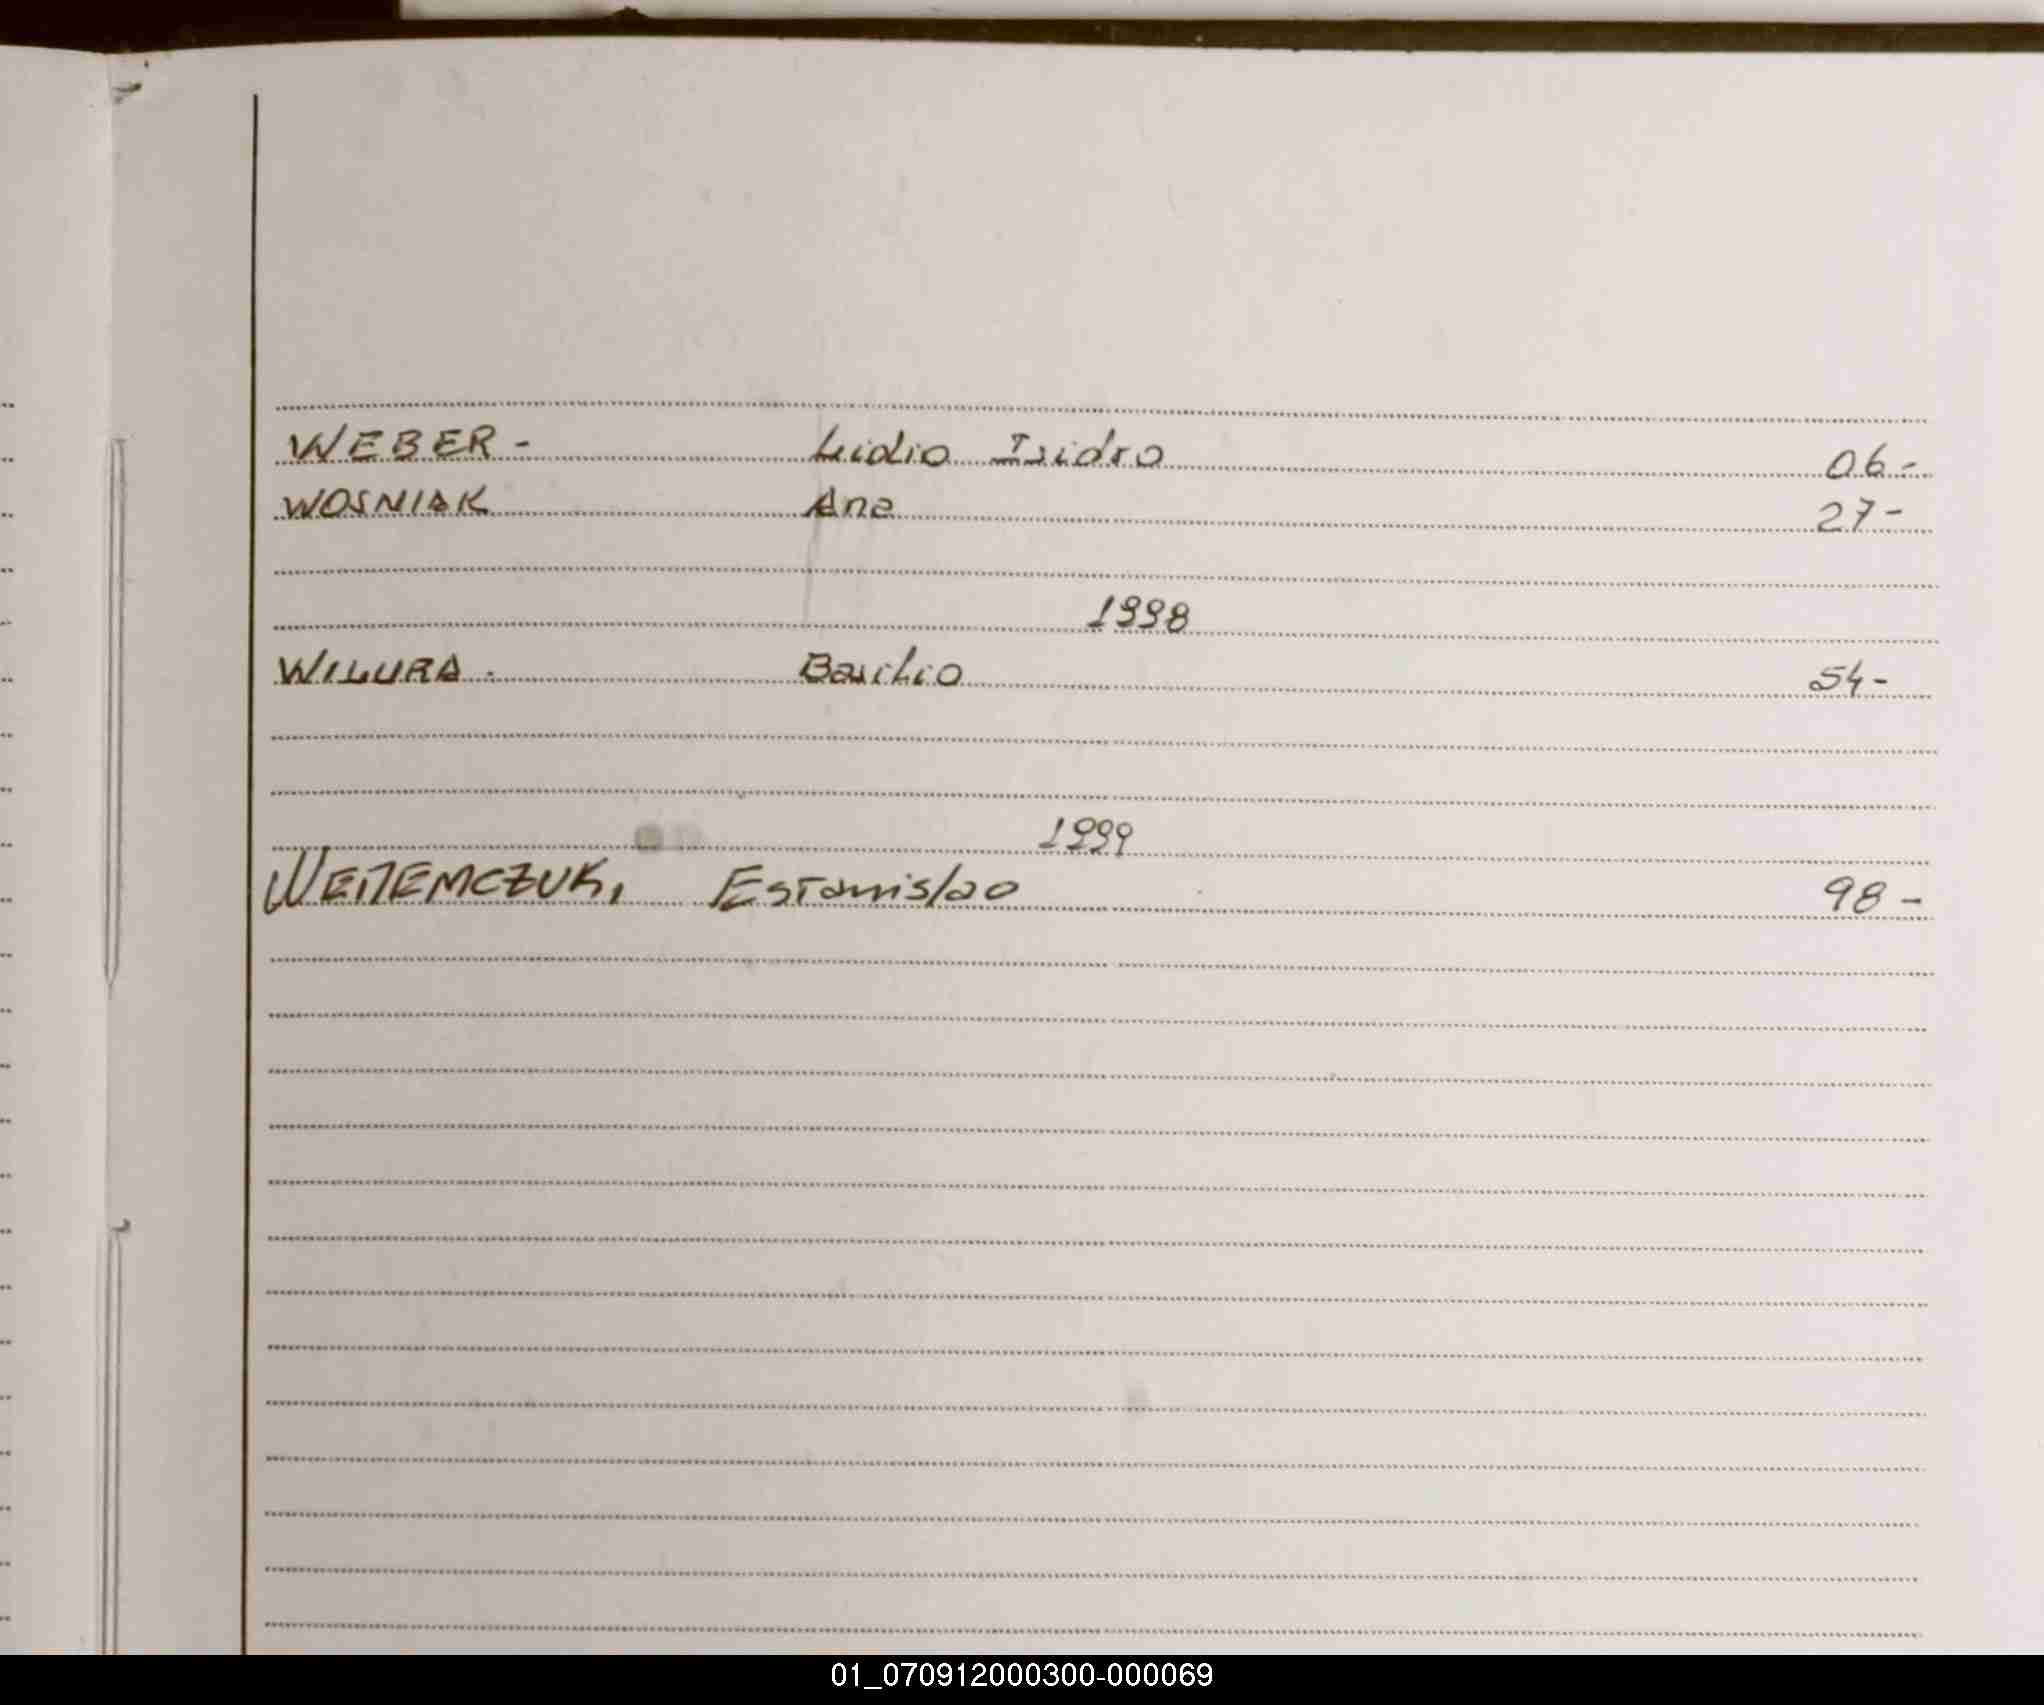 WEBER - Lidio Isidro 06-
WOSNIAK Ana 27-
1998
WILURA. Basilio 54-
1999
Estanislao 98-
01_070912000300-000069